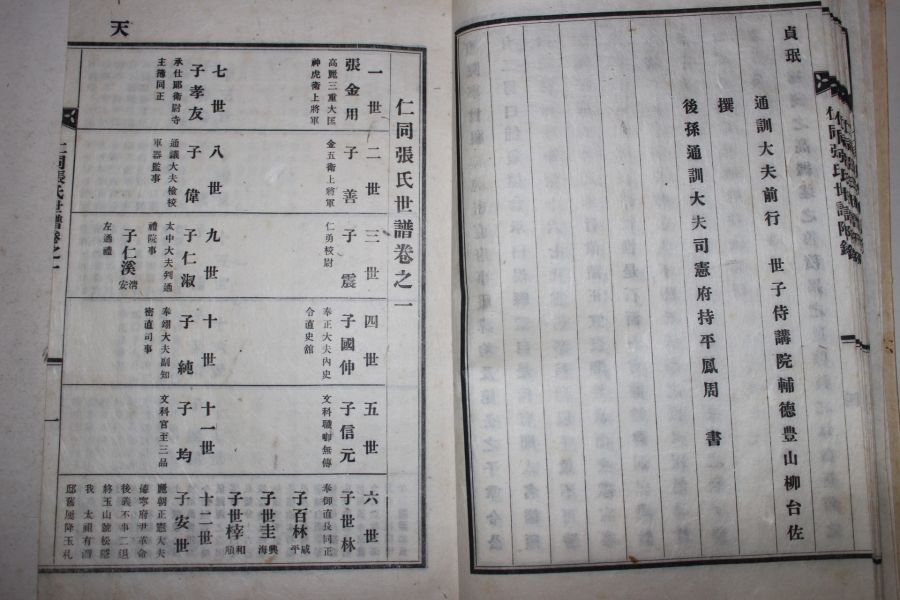 貞珉
通訓大夫前行 世子侍講院輔德豊山柳台佐
撰
後孫通訓大夫司憲府持平鳳周 書
天
仁同張氏世譜卷之一
一世
張金用
高麗三重大匡
神虎衛上將軍
二世
子善
金五衛上將軍
三世
子震
仁勇校尉
四世
子國伸
奉正大夫內史
令直史館
五世
子信元
文科職啣無傳
六世
子世林
奉御直長同正
子百林 咸平
子世圭 興海
子世梓 和順
七世
子孝友
承仕郞衛尉寺
主簿同正
八世
子偉
通議大夫檢校
軍器監事
九世
子仁淑
太中大夫判通
禮院事
子仁溪 淸安
左通禮
十世
子純
奉翊大夫副知
密直司事
十一世
子均
文科官至三品
十二世
子安世
麗朝正憲大夫
德寧府尹革命
後義不事二退
終玉山號松隱
我 太祖有潛
邸舊屢降玉札
仁同張氏世譜卷之一
一